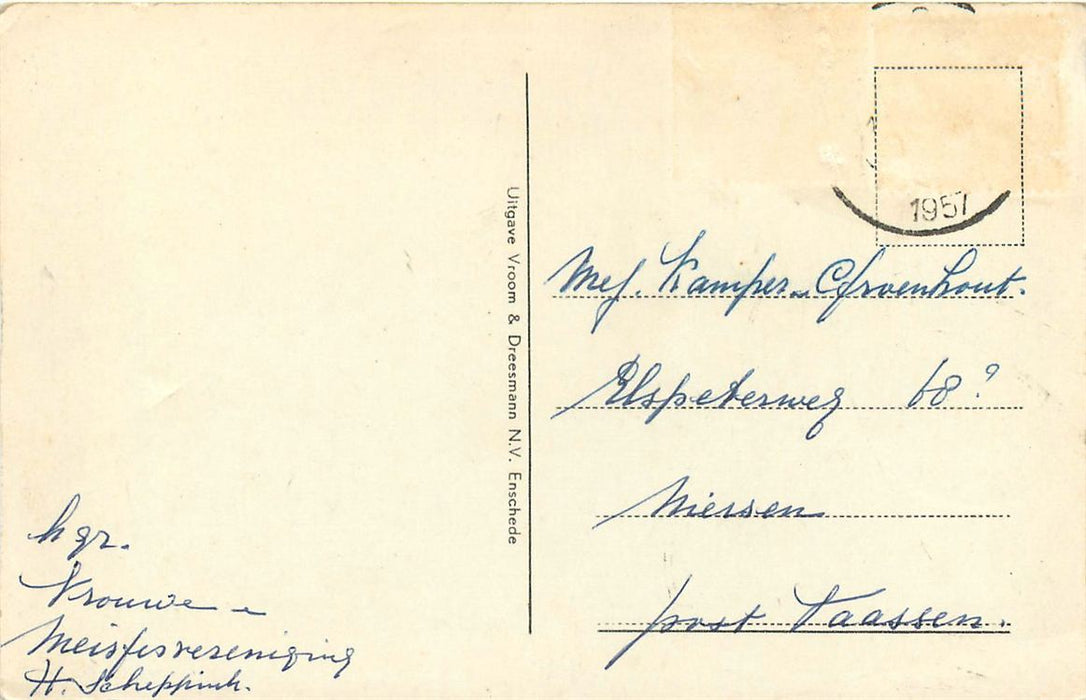 1957
Uitgave Vroom & Dreesmann N.V. Enschede
Mej. Kamper-Groenhout.
Elspeterweg 68?
Niersen
post Vaassen.
hgr.
Vrouwe -
Meisjesvereniging
H. Scheppink.